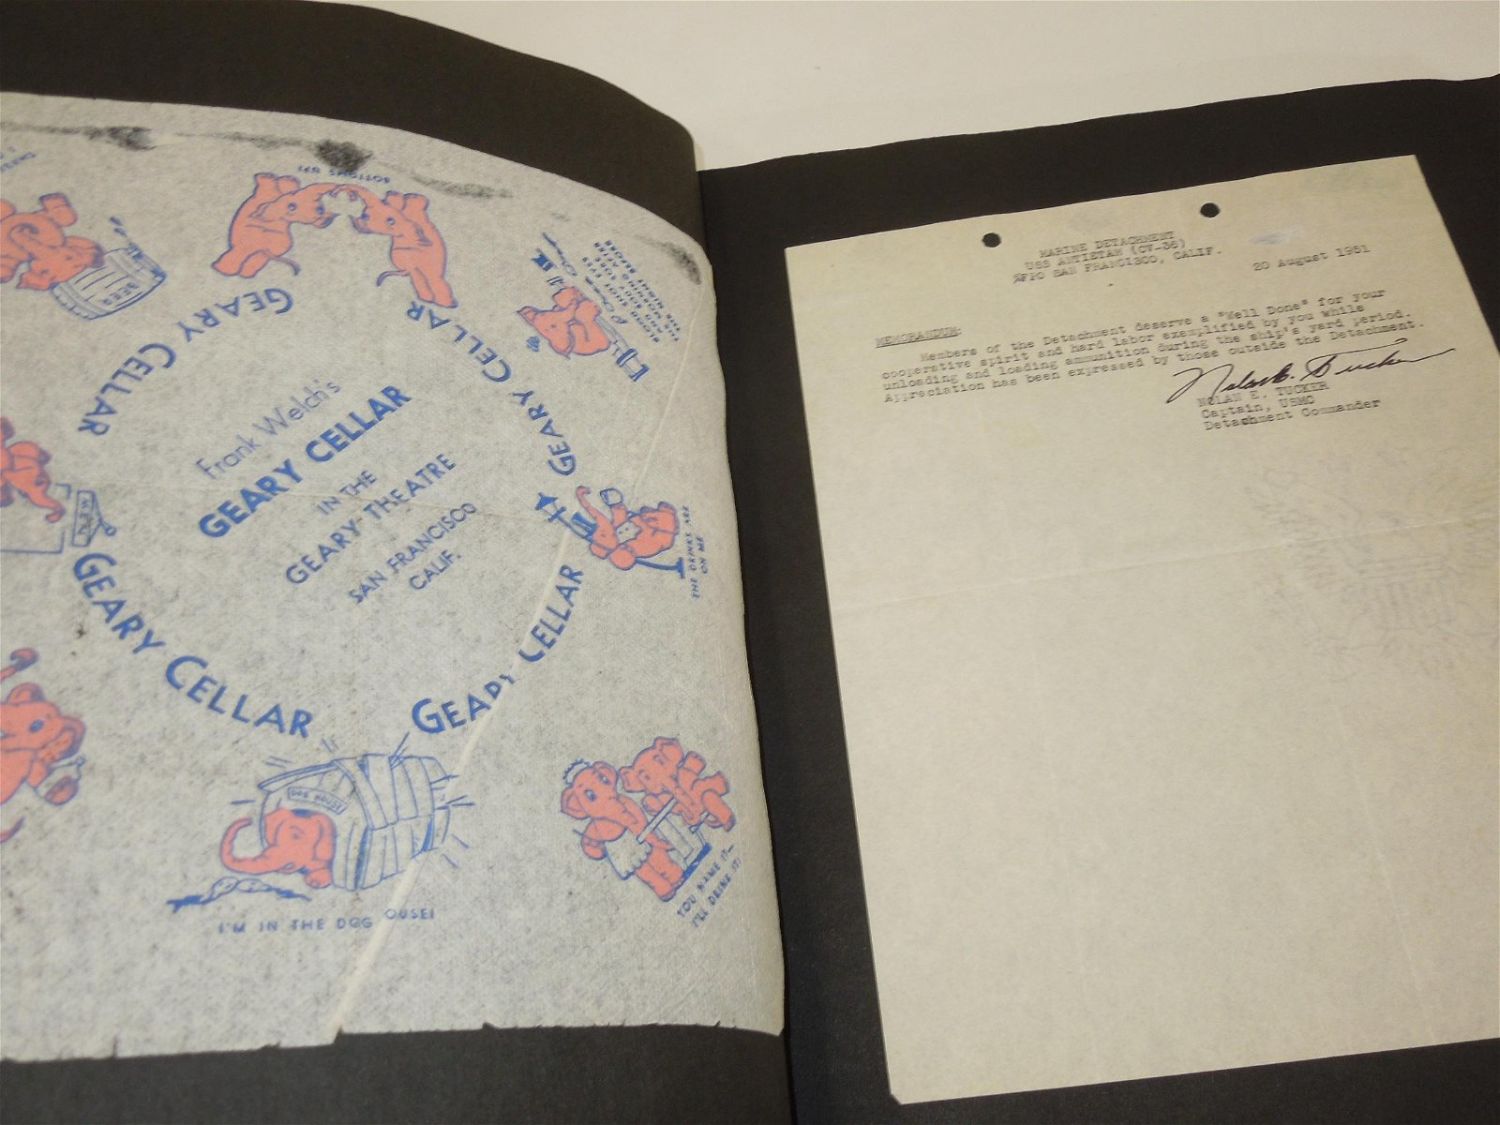 BOTTOMS UP!
BEER
GEARY CELLAR
GEARY CELLAR
GEARY CELLAR
GEARY CELLAR
GEARY CELLAR
Frank Welch's
GEARY CELLAR
IN THE
GEARY THEATRE
SAN FRANCISCO
CALIF.
THE DRINKS ARE
ON ME
DOG HOUSE
I'M IN THE DOG OUSE!
YOU NAME IT-
I'LL DRINK IT!
MARINE DETACHMENT
USS ANTIETAM (CV-36)
%FPO SAN FRANCISCO, CALIF.
20 August 1951
MEMORANDUM:
Members of the Detachment deserve a "Well Done" for your
cooperative spirit and hard labor exemplified by you while
unloading and loading ammunition during the ship's yard period.
Appreciation has been expressed by those outside the Detachment.
Nolan E. Tucker
NOLAN E. TUCKER
Captain, USMC
Detachment Commander